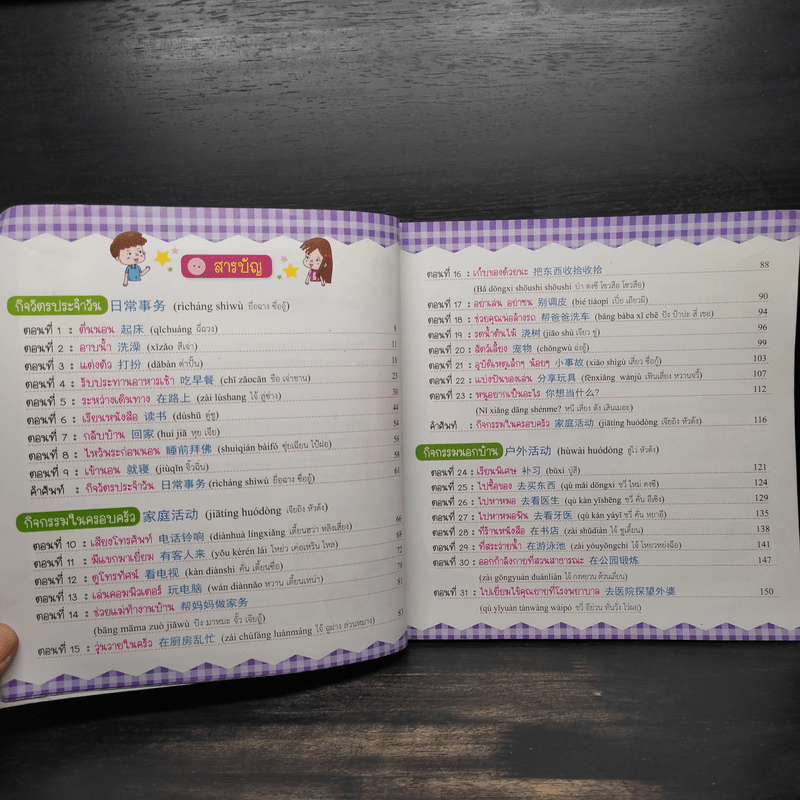 สารบัญ
กิจวัตรประจำวัน 日常事务 (rìcháng shìwù ยื่อฉาง ซื่ออู้)
ตอนที่ 1 : ตื่นนอน 起床 (qǐchuáng ฉี่ฉวง) 8
ตอนที่ 2 : อาบน้ำ 洗澡 (xǐzǎo สีเจ่า) 11
ตอนที่ 3 : แต่งตัว 打扮 (dǎbàn ต่าปั้น) 18
ตอนที่ 4 : รับประทานอาหารเช้า 吃早餐 (chī zǎocān ชือ เจ่าชาน) 23
ตอนที่ 5 : ระหว่างเดินทาง 在路上 (zài lùshang ไจ้ ลู่ซ่าง) 30
ตอนที่ 6 : เรียนหนังสือ 读书 (dúshū ตู๋ซู) 44
ตอนที่ 7 : กลับบ้าน 回家 (huí jiā หุย เจีย) 54
ตอนที่ 8 : ไหว้พระก่อนนอน 睡前拜佛 (shuìqián bàifó ซุ่ยเฉียน ไป้ฝอ) 56
ตอนที่ 9 : เข้านอน 就寝 (jiùqǐn จิ้วฉิ่น) 58
คำศัพท์ : กิจวัตรประจำวัน 日常事务 (rìcháng shìwù ยื่อฉาง ซื่ออู้) 61
กิจกรรมในครอบครัว 家庭活动 (jiātíng huódòng เจียถิง หัวต้ง)
ตอนที่ 10 : เสียงโทรศัพท์ 电话铃响 (diànhuà língxiǎng เตี้ยนฮว่า หลิงเสี่ยง) 66
ตอนที่ 11 : มีแขกมาเยี่ยม 有客人来 (yǒu kèrén lái โหย่ว เค่อเหริน ไหล) 68
ตอนที่ 12 : ดูโทรทัศน์ 看电视 (kàn diànshì คั่น เตี้ยนซื่อ) 72
ตอนที่ 13 : เล่นคอมพิวเตอร์ 玩电脑 (wán diànnǎo หวาน เตี้ยนเหน่า) 78
ตอนที่ 14 : ช่วยแม่ทำงานบ้าน 帮妈妈做家务 81
(bāng māma zuò jiāwù ปัง มาหมะ จั้ว เจียอู้)
ตอนที่ 15 : วุ่นวายในครัว 在厨房乱忙 (zài chúfáng luànmáng ไจ้ ฉูฝาง ล่วนหมาง) 83
ตอนที่ 16 : เก็บของด้วยนะ 把东西收拾收拾 88
(Bǎ dōngxi shōushi shōushi ป่า ตงซี โซวสือ โซวสือ)
ตอนที่ 17 : อย่าเล่น อย่าซน 别调皮 (bié tiáopí เปี๋ย เถียวผี) 90
ตอนที่ 18 : ช่วยคุณพ่อล้างรถ 帮爸爸洗车 (bāng bàba xǐ chē ปัง ป้าปะ สี่ เชอ) 94
ตอนที่ 19 : รดน้ำต้นไม้ 浇树 (jiāo shù เจียว ซู่) 96
ตอนที่ 20 : สัตว์เลี้ยง 宠物 (chǒngwù ฉ่งอู้) 99
ตอนที่ 21 : อุบัติเหตุเล็กๆ น้อยๆ 小事故 (xiǎo shìgù เสี่ยว ซื่อกู้) 103
ตอนที่ 22 : แบ่งปันของเล่น 分享玩具 (fēnxiǎng wánjù เฟินเสี่ยง หวานจวี้) 107
ตอนที่ 23 : หนูอยากเป็นอะไร 你想当什么? 112
(Nǐ xiǎng dāng shénme? หนี่ เสี่ยง ตัง เสินเมอะ)
คำศัพท์ : กิจกรรมในครอบครัว 家庭活动 (jiātíng huódòng เจียถิง หัวต้ง) 116
กิจกรรมนอกบ้าน 户外活动 (hùwài huódòng ฮู่ไว่ หัวต้ง)
ตอนที่ 24 : เรียนพิเศษ 补习 (bǔxí ปู่สี) 121
ตอนที่ 25 : ไปซื้อของ 去买东西 (qù mǎi dōngxi ชวี่ ไหม่ ตงซี) 124
ตอนที่ 26 : ไปหาหมอ 去看医生 (qù kàn yīshēng ชวี่ คั่น อีเซิง) 129
ตอนที่ 27 : ไปหาหมอฟัน 去看牙医 (qù kàn yáyī ชวี่ คั่น หยาอี) 135
ตอนที่ 28 : ที่ร้านหนังสือ 在书店 (zài shūdiàn ไจ้ ซูเตี้ยน) 138
ตอนที่ 29 : ที่สระว่ายน้ำ 在游泳池 (zài yóuyǒngchí ไจ้ โหยวหย่งฉือ) 141
ตอนที่ 30 : ออกกำลังกายที่สวนสาธารณะ 在公园锻炼 147
(zài gōngyuán duànliàn ไจ้ กงยวน ต้วนเลี่ยน)
ตอนที่ 31 : ไปเยี่ยมไข้คุณยายที่โรงพยาบาล 去医院探望外婆 150
(qù yīyuàn tànwàng wàipó ชวี่ อีย่วน ทั่นวั่ง ไว่ผอ)